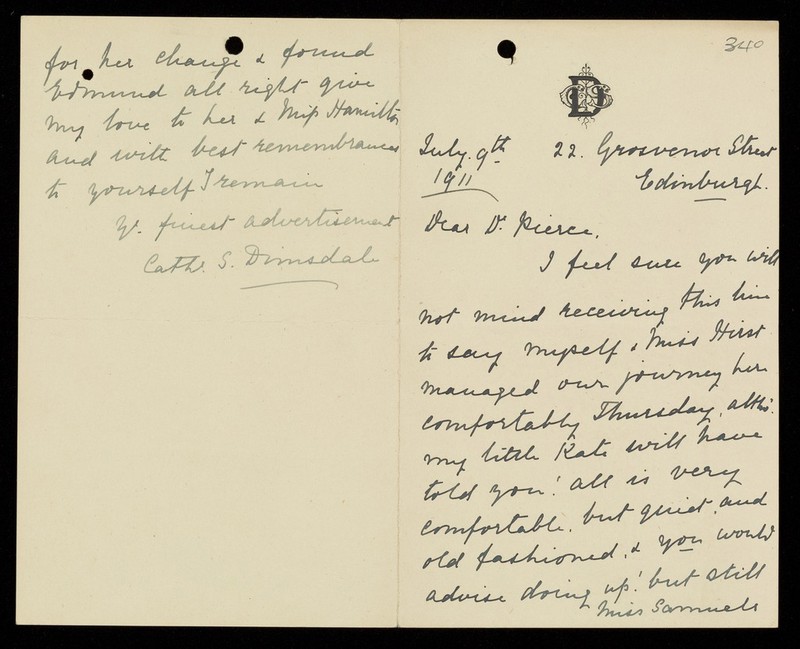 340
July. 9th 22. Grosvenor Street
1911 Edinburgh.
Dear Dr. Pierce,
I feel sure you will
not mind receiving this line
to say myself & Miss Hirst
managed our journey here
comfortably Thursday, altho'
my little Kate will have
told you! all is very
comfortable, but quiet, and
old fashioned, & you would
advise doing up! but still
Miss Samuels
for her change & found
Edmund all right give
my love to her & Miss Hamilton
and with best remembrances
to yourself I remain
Yr. finest advertisement
Cath. S. Dimsdale